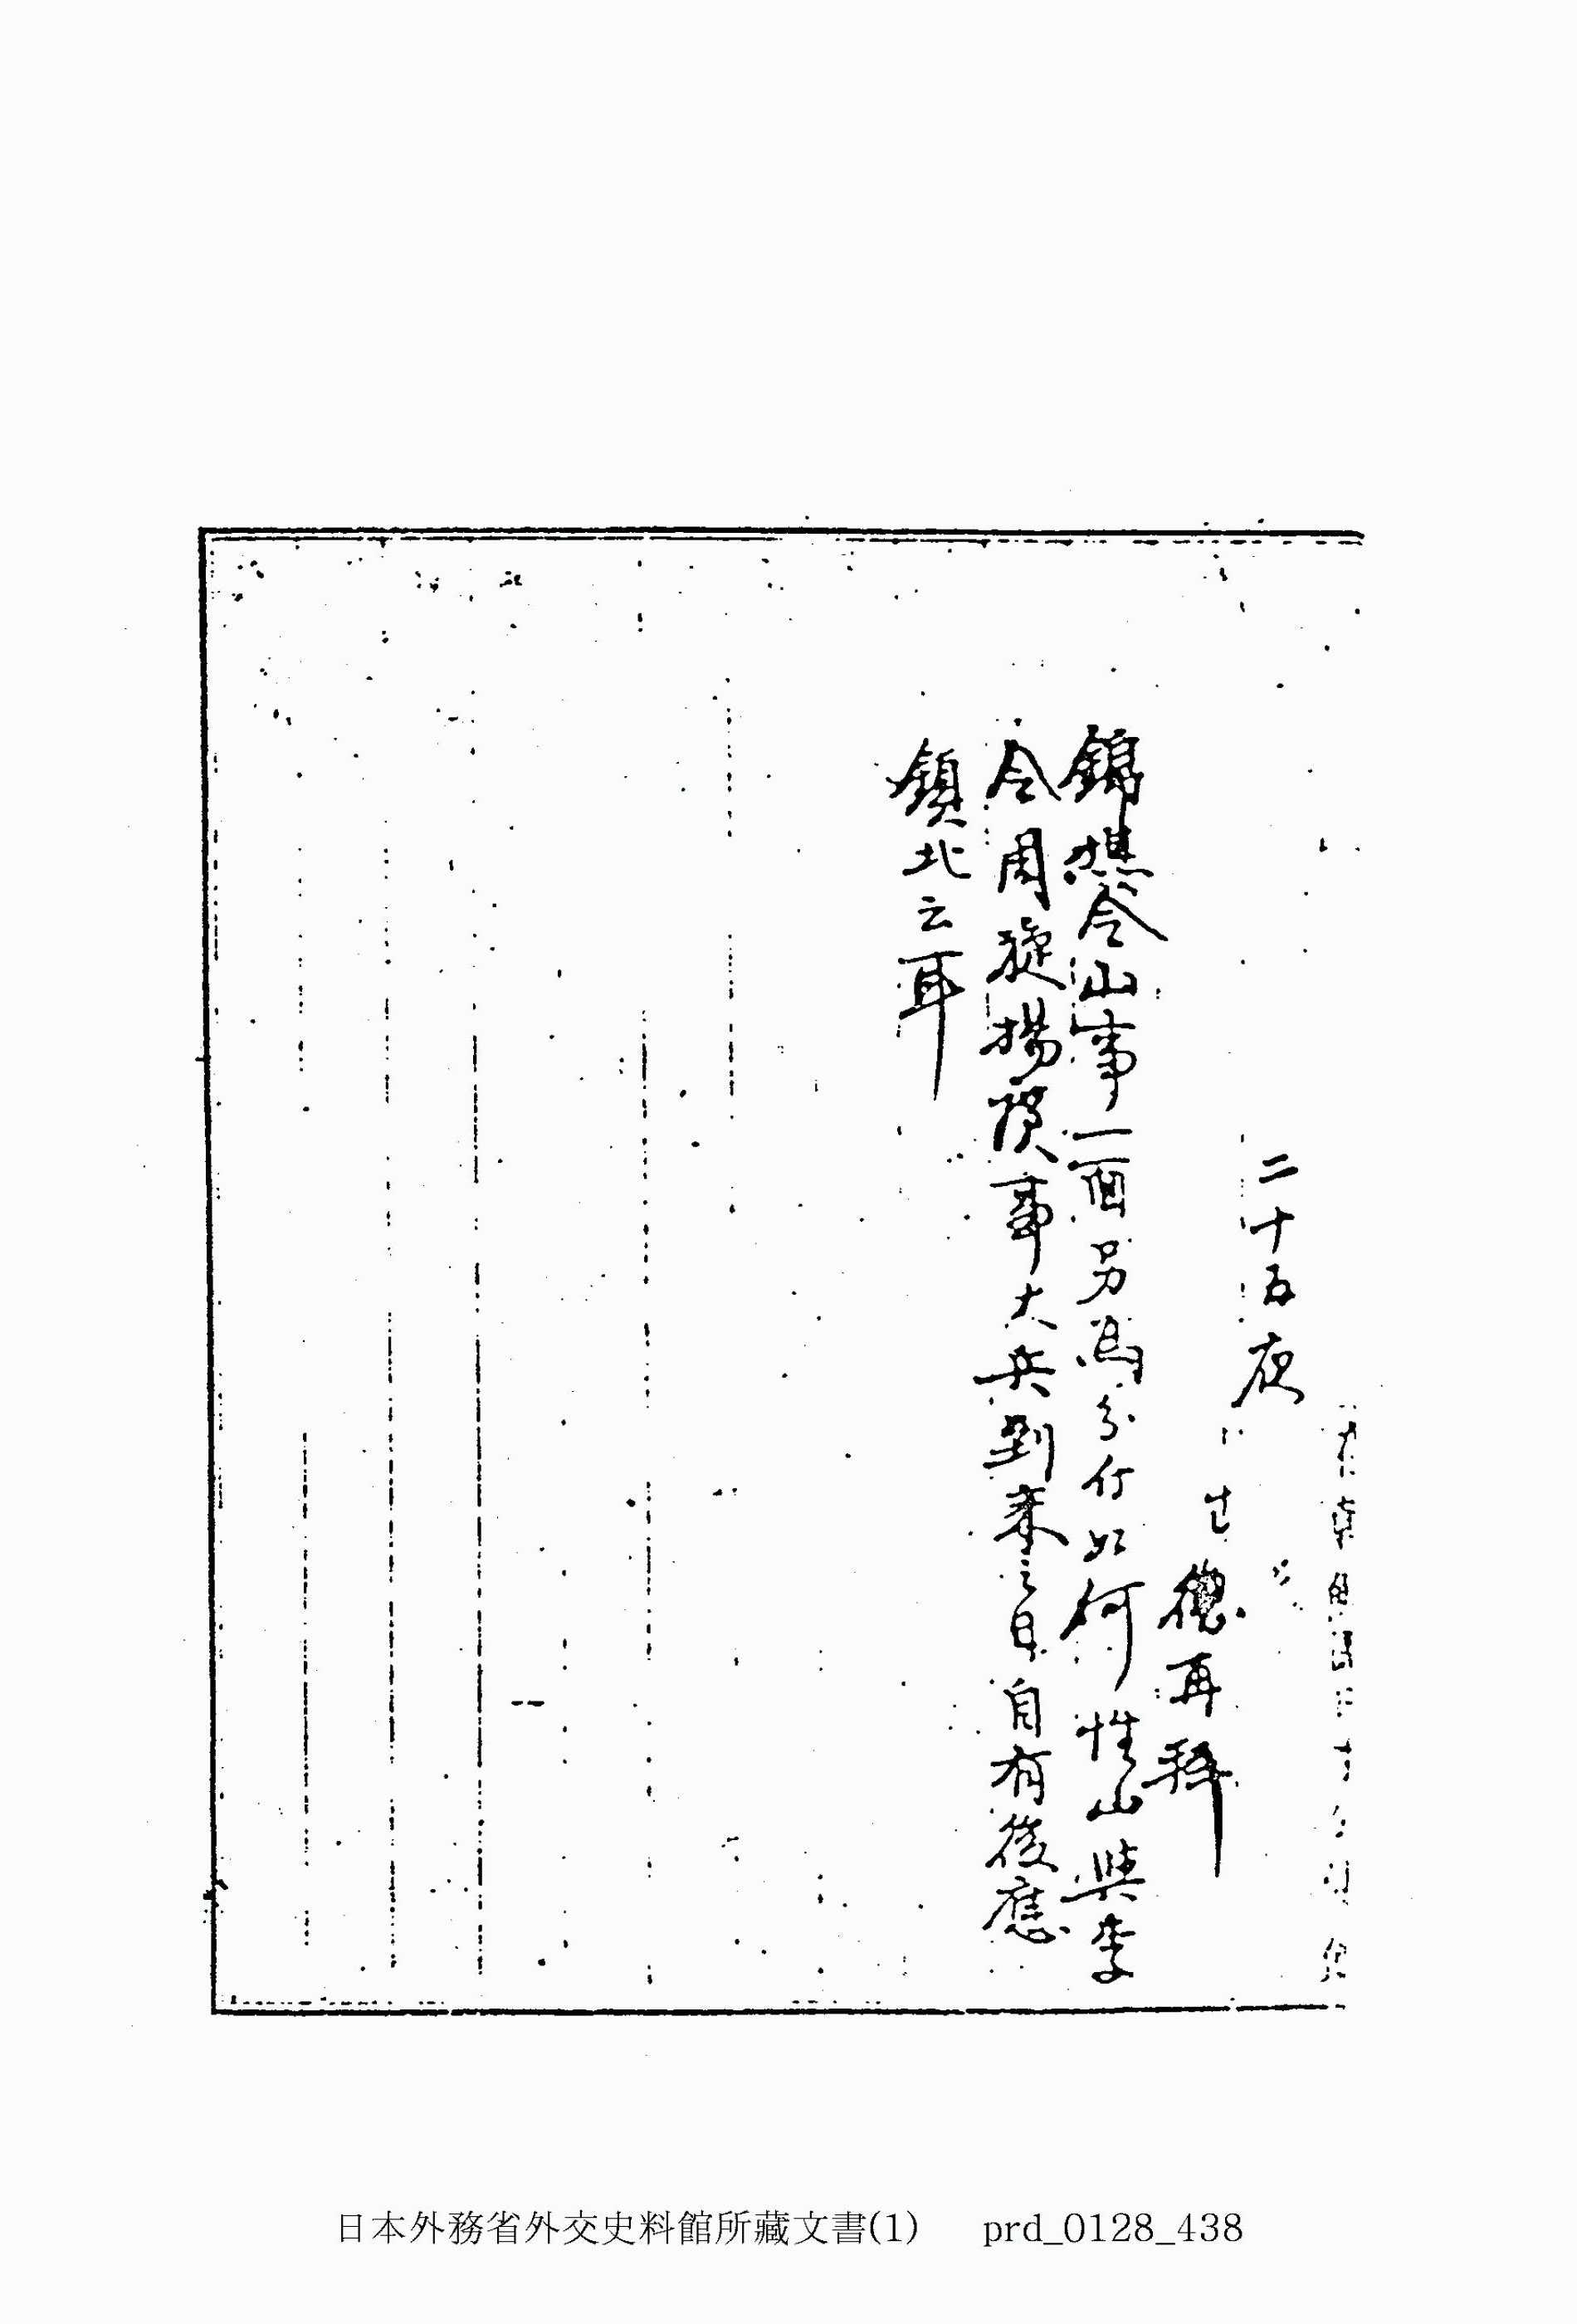 二十五夜
德再拜
錦想令山事一面另爲分付如何性山與李
令周旋揚 事大兵到来之日自有後應
鎮北云耳
日本外務省外交史料館所藏文書(1) prd_0128_438